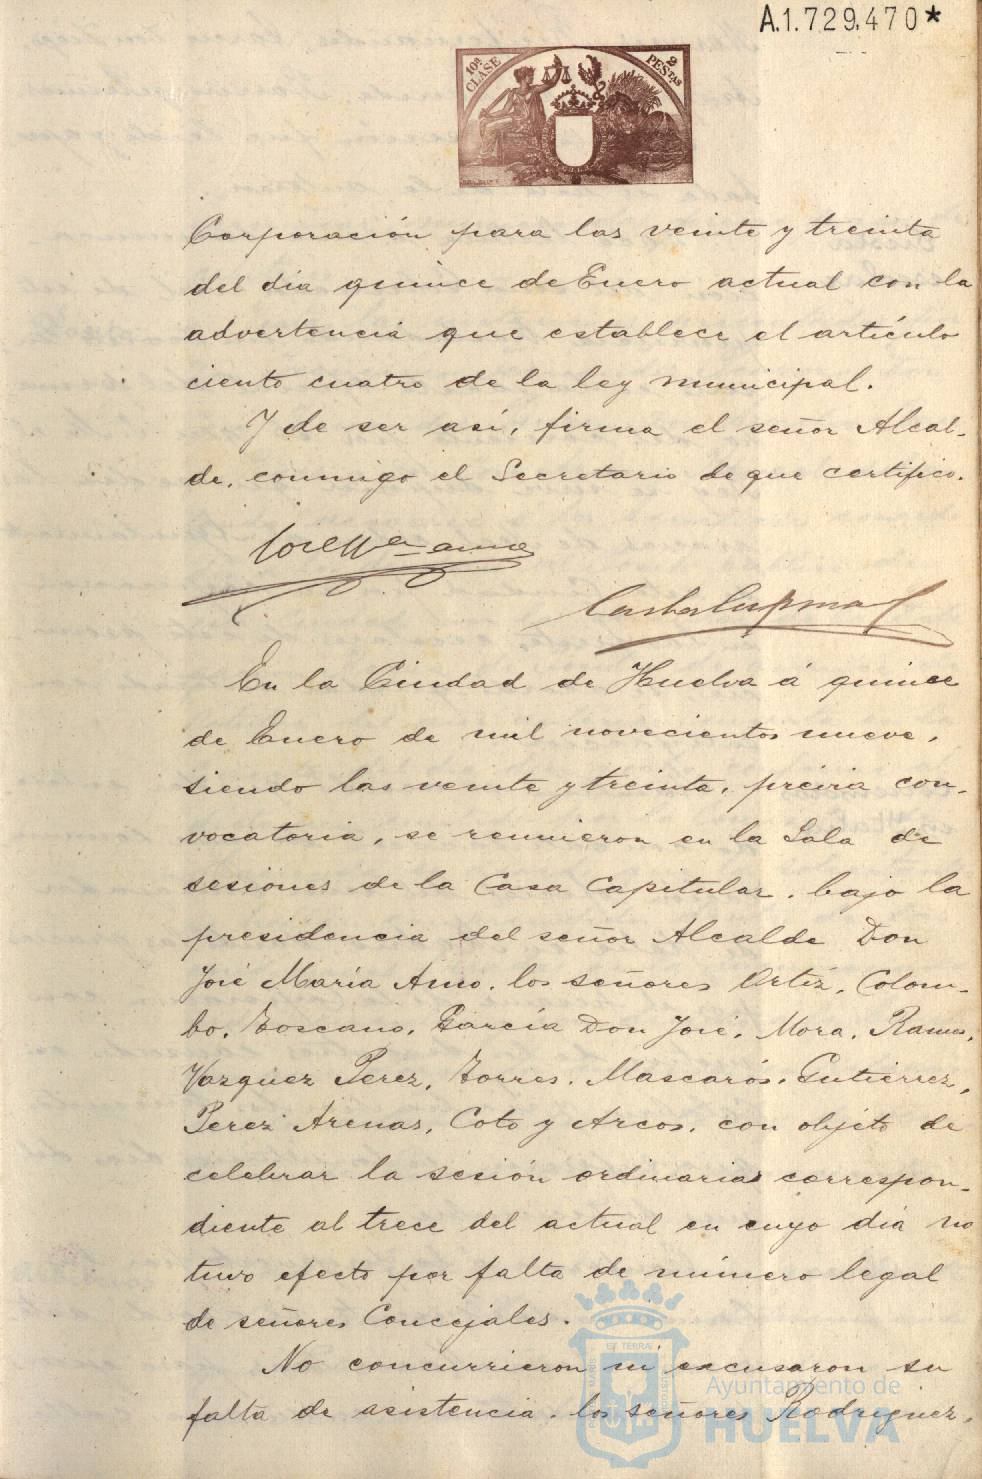 A.1.729,470*
10ª CLASE
2 PESTAS
Corporación para las veinte y treinta
del dia quince de Enero actual con la
advertencia que establece el artículo
ciento cuatro de la ley municipal.
Y de ser así, firma el señor Alcal-
de, conmigo el Secretario de que certifico.
En la Ciudad de Huelva á quince
de Enero de mil novecientos nueve,
siendo las veinte y treinta, prévia con-
vocatoria, se reunieron en la Sala de
sesiones de la Casa Capitular, bajo la
presidencia del señor Alcalde Don
José María Amo, los señores Ortíz, Colom-
bo, Toscano, García Don José, Mora, Ramos,
Vazquez Perez, Torres, Mascarós, Gutierrez,
Perez Arenas, Coto y Arcos, con objeto de
celebrar la sesión ordinaria correspon-
diente al trece del actual en cuyo día no
tuvo efecto por falta de número legal
de señores Concejales.
No concurrieron ni excusaron su
falta de asistencia, los señores Rodriguez,
Ayuntamiento de
HUELVA